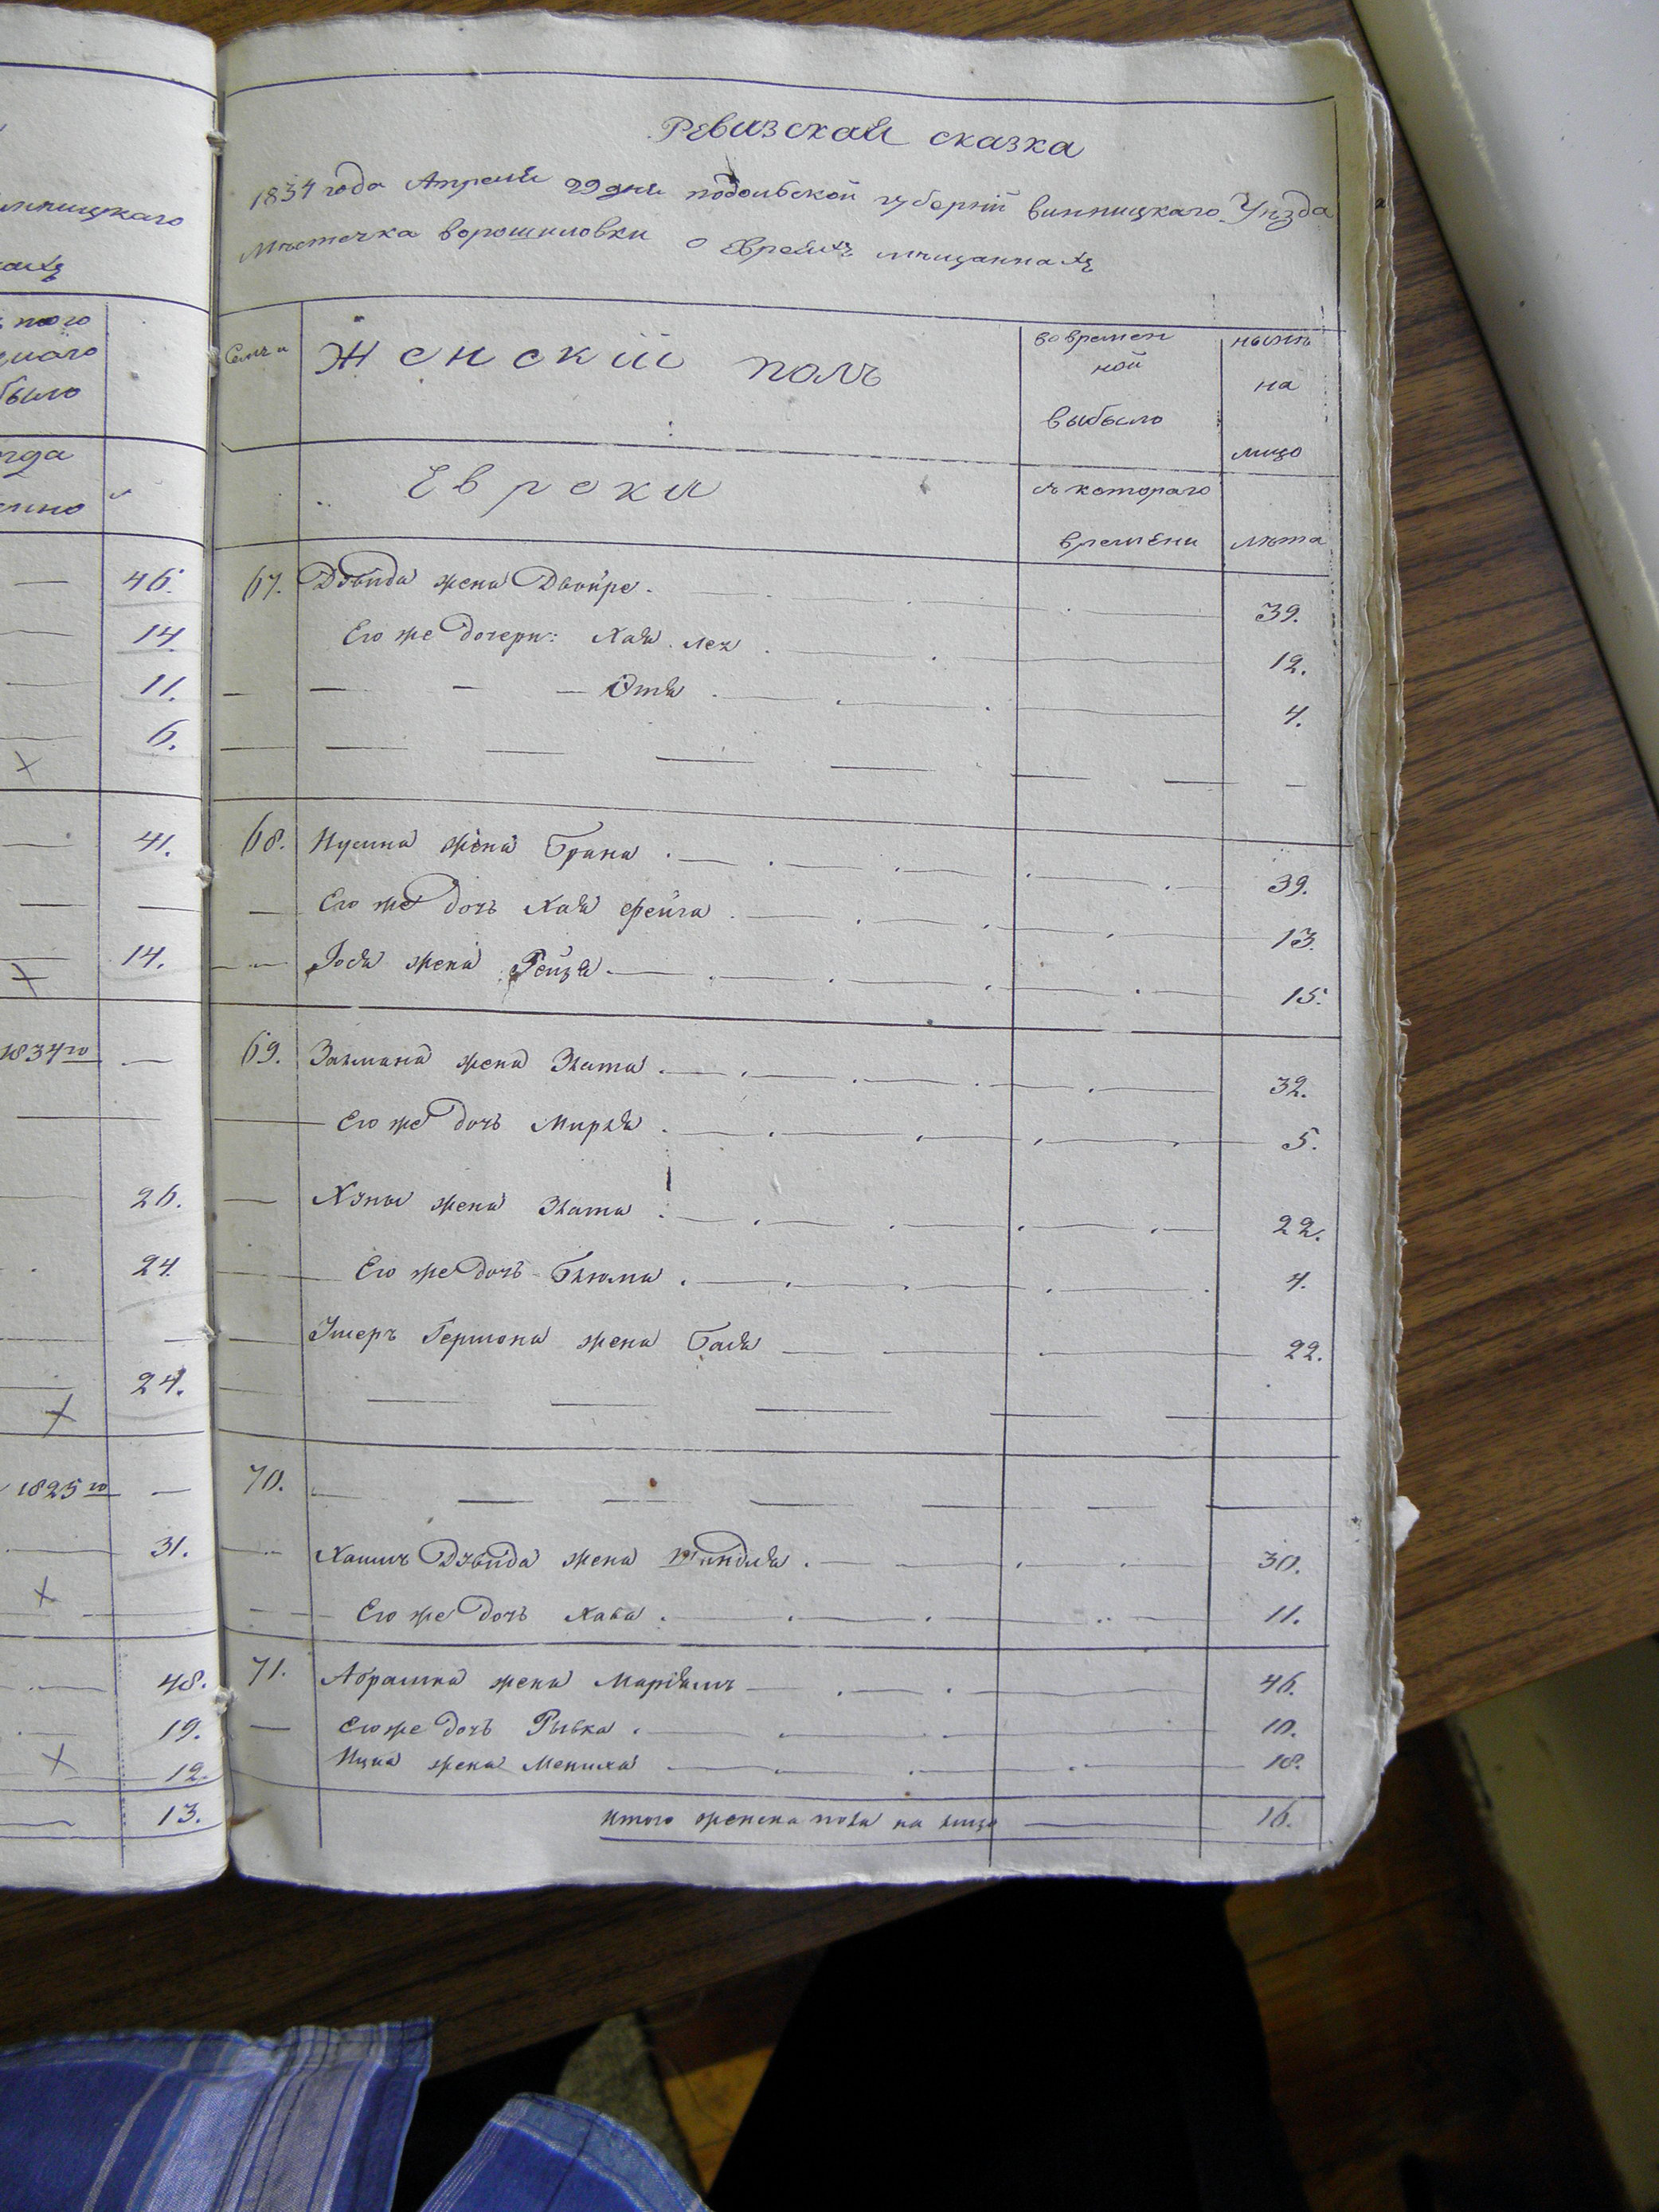 нницкаго
ахъ
того
было
46.
14.
11.
6.
41.
14.
1834го
26.
24.
24.
1825го
31.
48.
19.
12.
13.
Ревизская сказка
1834 года Апреля 29 дня подольской губерній винницкаго Уѣзда
мѣстечка ворошиловки о Евреяхъ мѣщаннахъ
Семьи Женскій полъ во времен ной выбыло нынѣ на лицо
Еврѣки съ котораго времени лѣта
67. Дувида жена Двойре. 39.
Его же дочери: Хая лея 12.
Этя 4.
68. Нусина жена Брана. 39.
Его же дочь Хая фейга. 13.
Іося жена Рейзя. 15.
69. Залмана жена Злата. 32.
Его же дочь Мирля. 5.
Хуны жена Злата. 22.
Его же дочь Блюма. 4.
Умеръ Гершона жена Бася 22.
70.
Хаимъ Дувида жена Шиндля. 30.
Его же дочь Хава. 11.
71. Абрамка жена Маріямъ 46.
Его же дочь Рывка. 10.
Ицка жена Мениха 18.
Итого женска пола на лицо 16.